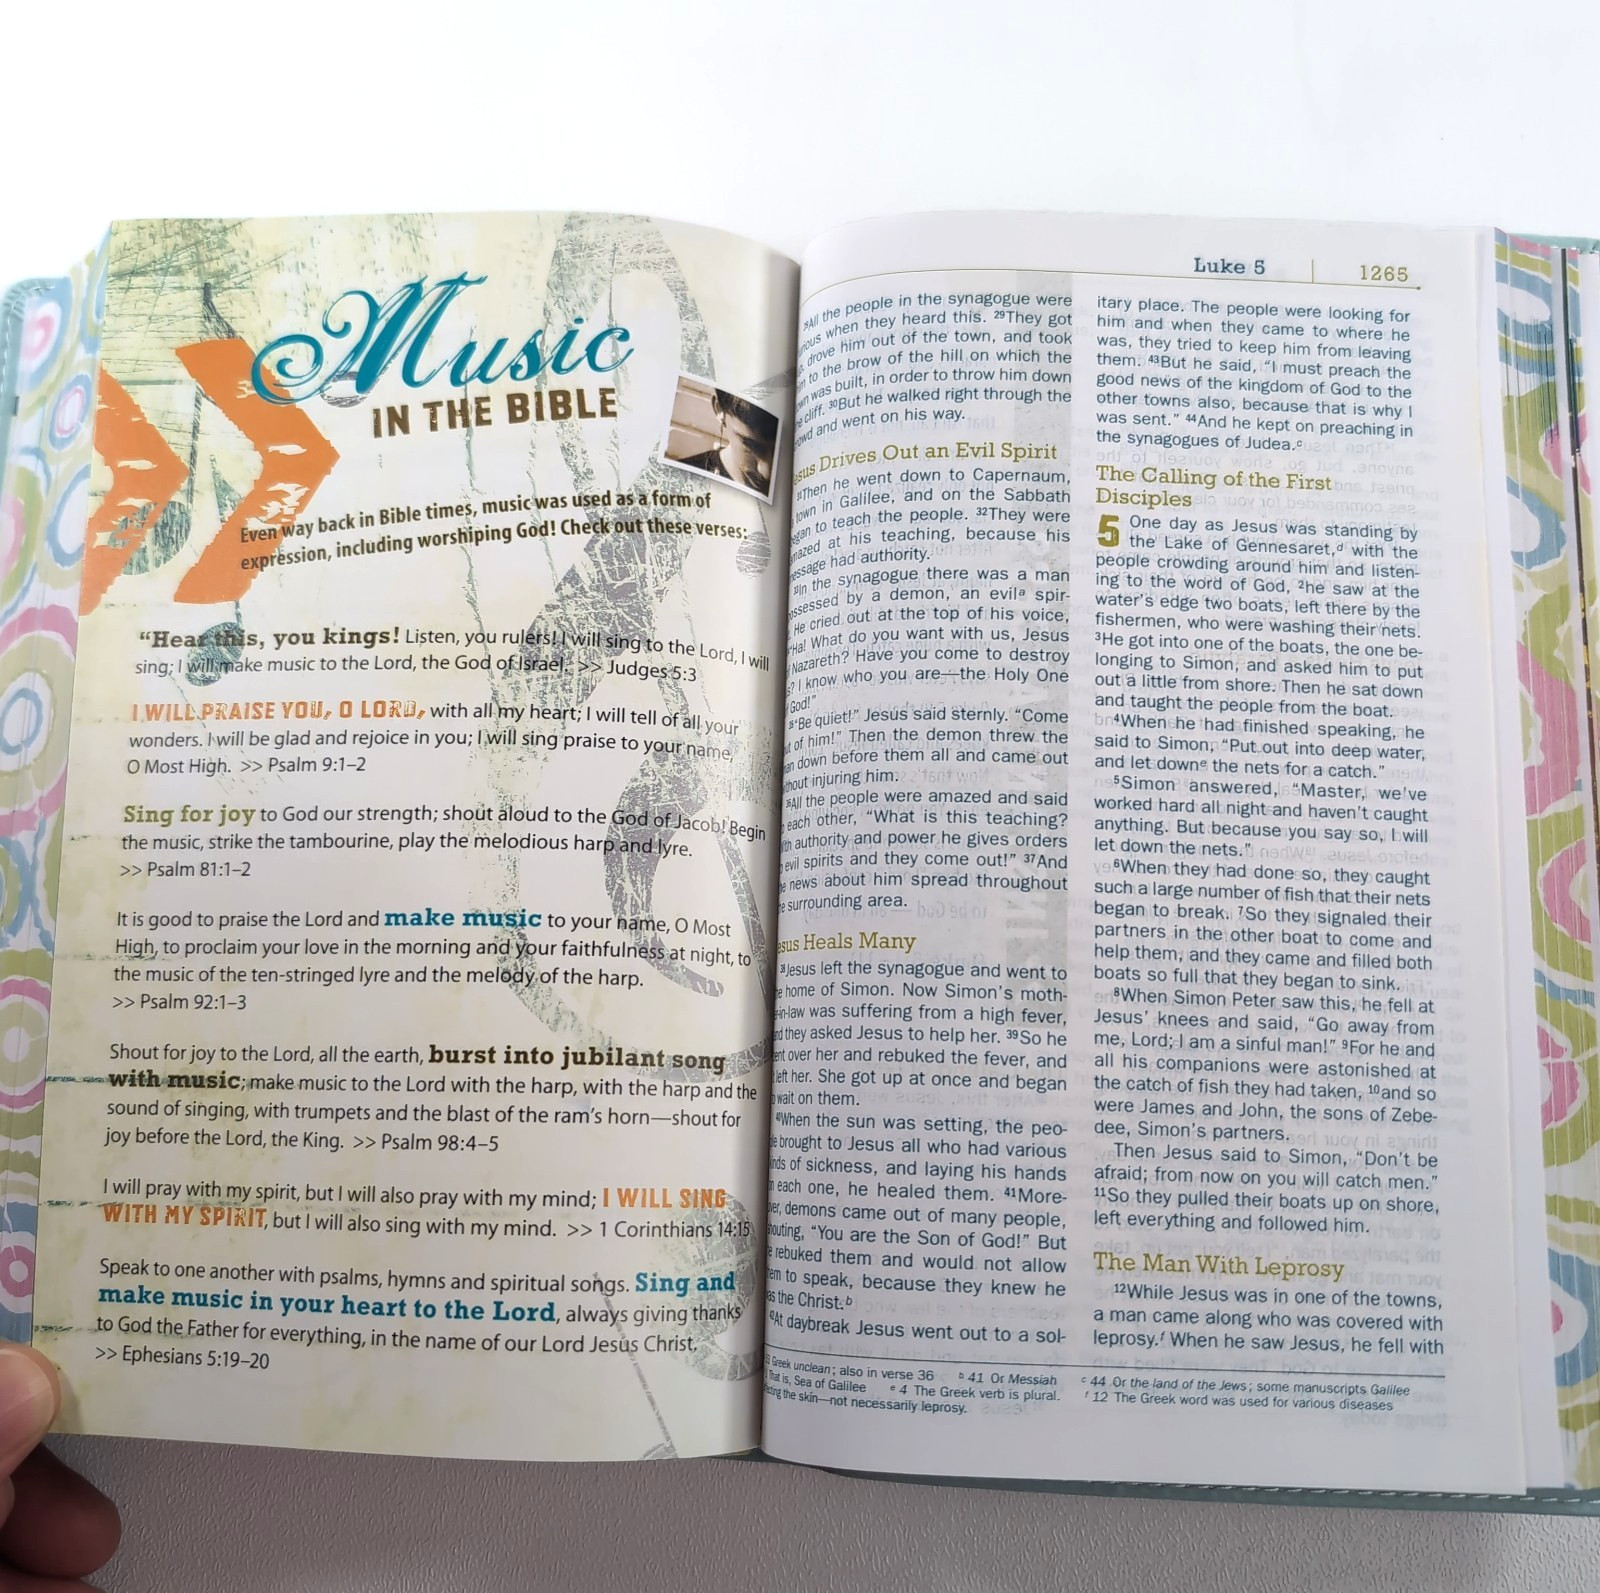 Music
IN THE BIBLE
Even way back in Bible times, music was used as a form of
expression, including worshiping God! Check out these verses:
“Hear this, you kings! Listen, you rulers! I will sing to the Lord, I will
sing; I will make music to the Lord, the God of Israel. >> Judges 5:3
I WILL PRAISE YOU, O LORD, with all my heart; I will tell of all your
wonders. I will be glad and rejoice in you; I will sing praise to your name,
O Most High. >> Psalm 9:1–2
Sing for joy to God our strength; shout aloud to the God of Jacob! Begin
the music, strike the tambourine, play the melodious harp and lyre.
>> Psalm 81:1–2
It is good to praise the Lord and make music to your name, O Most
High, to proclaim your love in the morning and your faithfulness at night, to
the music of the ten-stringed lyre and the melody of the harp.
>> Psalm 92:1–3
Shout for joy to the Lord, all the earth, burst into jubilant song
with music; make music to the Lord with the harp, with the harp and the
sound of singing, with trumpets and the blast of the ram’s horn—shout for
joy before the Lord, the King. >> Psalm 98:4–5
I will pray with my spirit, but I will also pray with my mind; I WILL SING
WITH MY SPIRIT, but I will also sing with my mind. >> 1 Corinthians 14:15
Speak to one another with psalms, hymns and spiritual songs. Sing and
make music in your heart to the Lord, always giving thanks
to God the Father for everything, in the name of our Lord Jesus Christ.
>> Ephesians 5:19–20
Luke 5 | 1265
28All the people in the synagogue were
when they heard this. 29They got
drove him out of the town, and took
to the brow of the hill on which the
was built, in order to throw him down
cliff. 30But he walked right through the
and went on his way.
Drives Out an Evil Spirit
31Then he went down to Capernaum,
town in Galilee, and on the Sabbath
to teach the people. 32They were
at his teaching, because his
had authority.
33In the synagogue there was a man
by a demon, an evila spir-
He cried out at the top of his voice,
“Ha! What do you want with us, Jesus
Nazareth? Have you come to destroy
I know who you are—the Holy One
God!”
35“Be quiet!” Jesus said sternly. “Come
of him!” Then the demon threw the
down before them all and came out
injuring him.
36All the people were amazed and said
each other, “What is this teaching?
authority and power he gives orders
evil spirits and they come out!” 37And
news about him spread throughout
surrounding area.
Heals Many
38Jesus left the synagogue and went to
home of Simon. Now Simon’s moth-
was suffering from a high fever,
they asked Jesus to help her. 39So he
over her and rebuked the fever, and
left her. She got up at once and began
wait on them.
40When the sun was setting, the peo-
brought to Jesus all who had various
of sickness, and laying his hands
each one, he healed them. 41More-
demons came out of many people,
“You are the Son of God!” But
rebuked them and would not allow
to speak, because they knew he
the Christ.b
42At daybreak Jesus went out to a sol-
itary place. The people were looking for
him and when they came to where he
was, they tried to keep him from leaving
them. 43But he said, “I must preach the
good news of the kingdom of God to the
other towns also, because that is why I
was sent.” 44And he kept on preaching in
the synagogues of Judea.c
The Calling of the First
Disciples
5 One day as Jesus was standing by
the Lake of Gennesaret,d with the
people crowding around him and listen-
ing to the word of God, 2he saw at the
water’s edge two boats, left there by the
fishermen, who were washing their nets.
3He got into one of the boats, the one be-
longing to Simon, and asked him to put
out a little from shore. Then he sat down
and taught the people from the boat.
4When he had finished speaking, he
said to Simon, “Put out into deep water,
and let downe the nets for a catch.”
5Simon answered, “Master, we’ve
worked hard all night and haven’t caught
anything. But because you say so, I will
let down the nets.”
6When they had done so, they caught
such a large number of fish that their nets
began to break. 7So they signaled their
partners in the other boat to come and
help them, and they came and filled both
boats so full that they began to sink.
8When Simon Peter saw this, he fell at
Jesus’ knees and said, “Go away from
me, Lord; I am a sinful man!” 9For he and
all his companions were astonished at
the catch of fish they had taken, 10and so
were James and John, the sons of Zebe-
dee, Simon’s partners.
Then Jesus said to Simon, “Don’t be
afraid; from now on you will catch men.”
11So they pulled their boats up on shore,
left everything and followed him.
The Man With Leprosy
12While Jesus was in one of the towns,
a man came along who was covered with
leprosy.f When he saw Jesus, he fell with
Greek unclean; also in verse 36 b 41 Or Messiah c 44 Or the land of the Jews; some manuscripts Galilee
That is, Sea of Galilee e 4 The Greek verb is plural. f 12 The Greek word was used for various diseases
the skin—not necessarily leprosy.